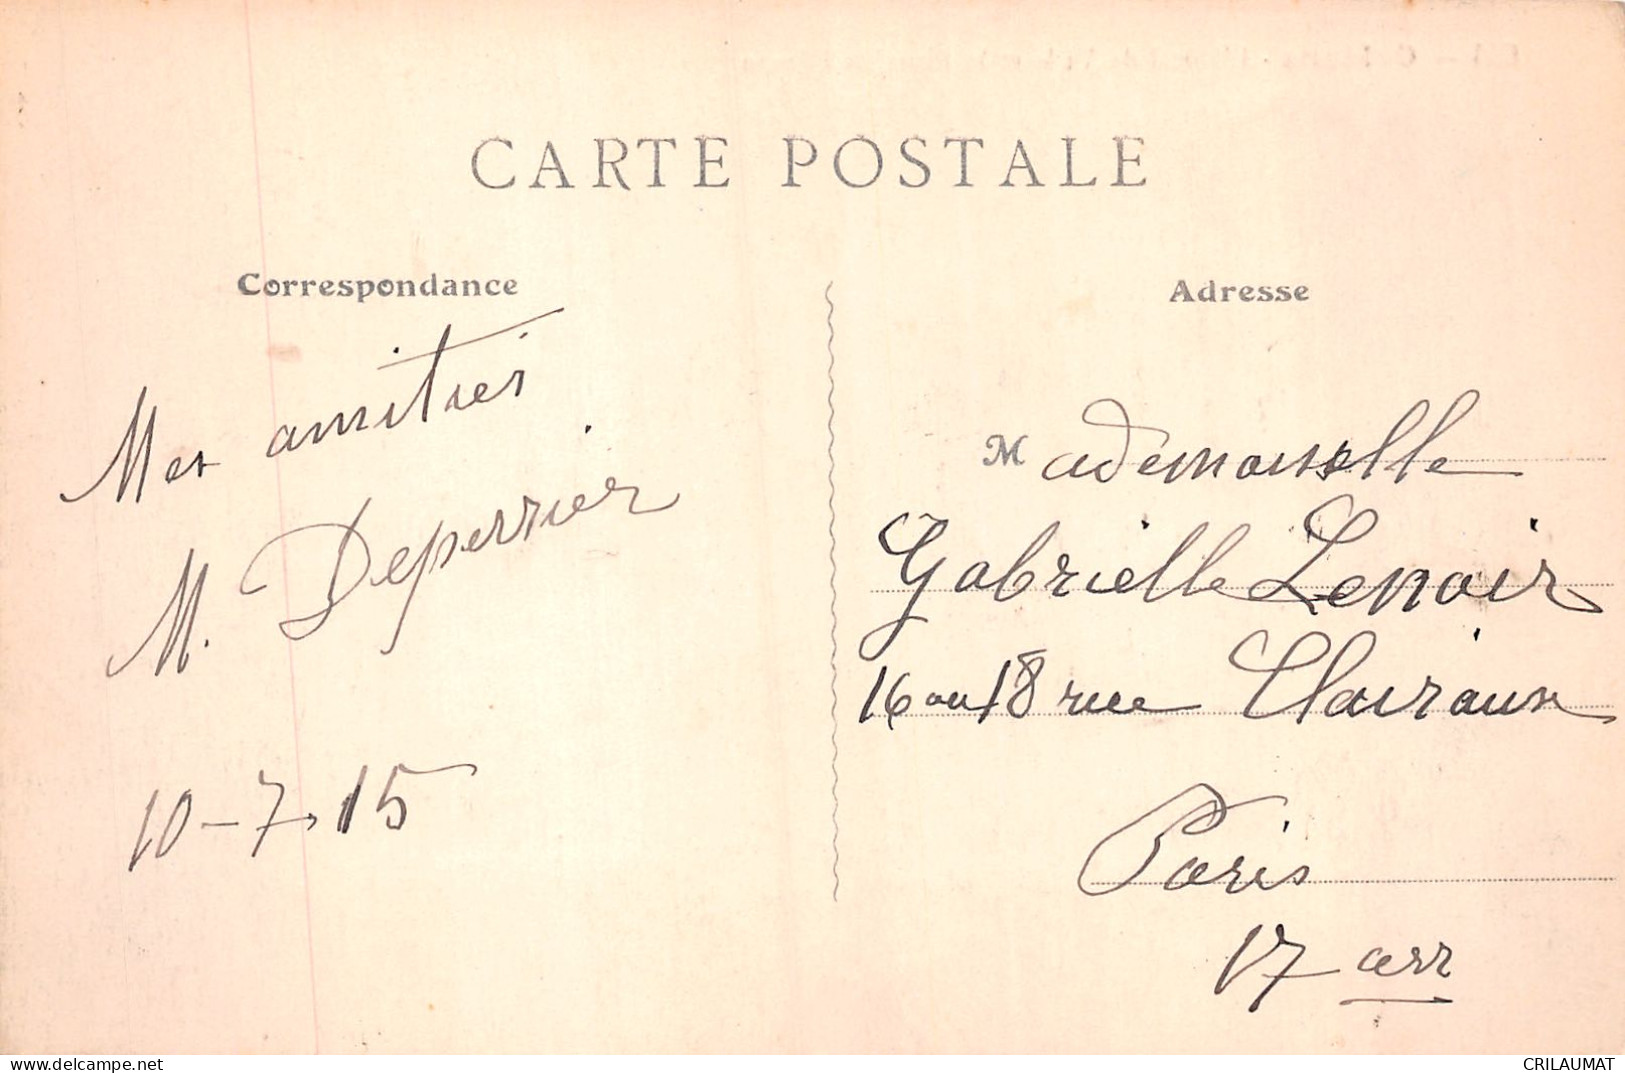 CARTE POSTALE
Correspondance
Mes amitiés
M. Deperrier
10-7-15
Adresse
Mademoiselle
Gabrielle Lenoir
16 ou 18 rue Clairaux
Paris
17 arr
www.delcampe.net
CRILAUMAT